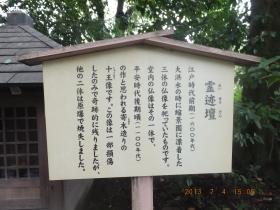 霊迹壇
江戸時代前期(一六〇〇年代)
大洪水の時に縮景園に漂着した
三体の仏像を祀っていたものです。
堂内の仏像はその一体で、
平安時代後期頃(一一〇〇年代)
の作と思われる寄木造りの
十王像です。この像は一部損傷
したのみで奇跡的に残りましたが、
他の二体は原爆で焼失しました。
2013 7 4 15:05